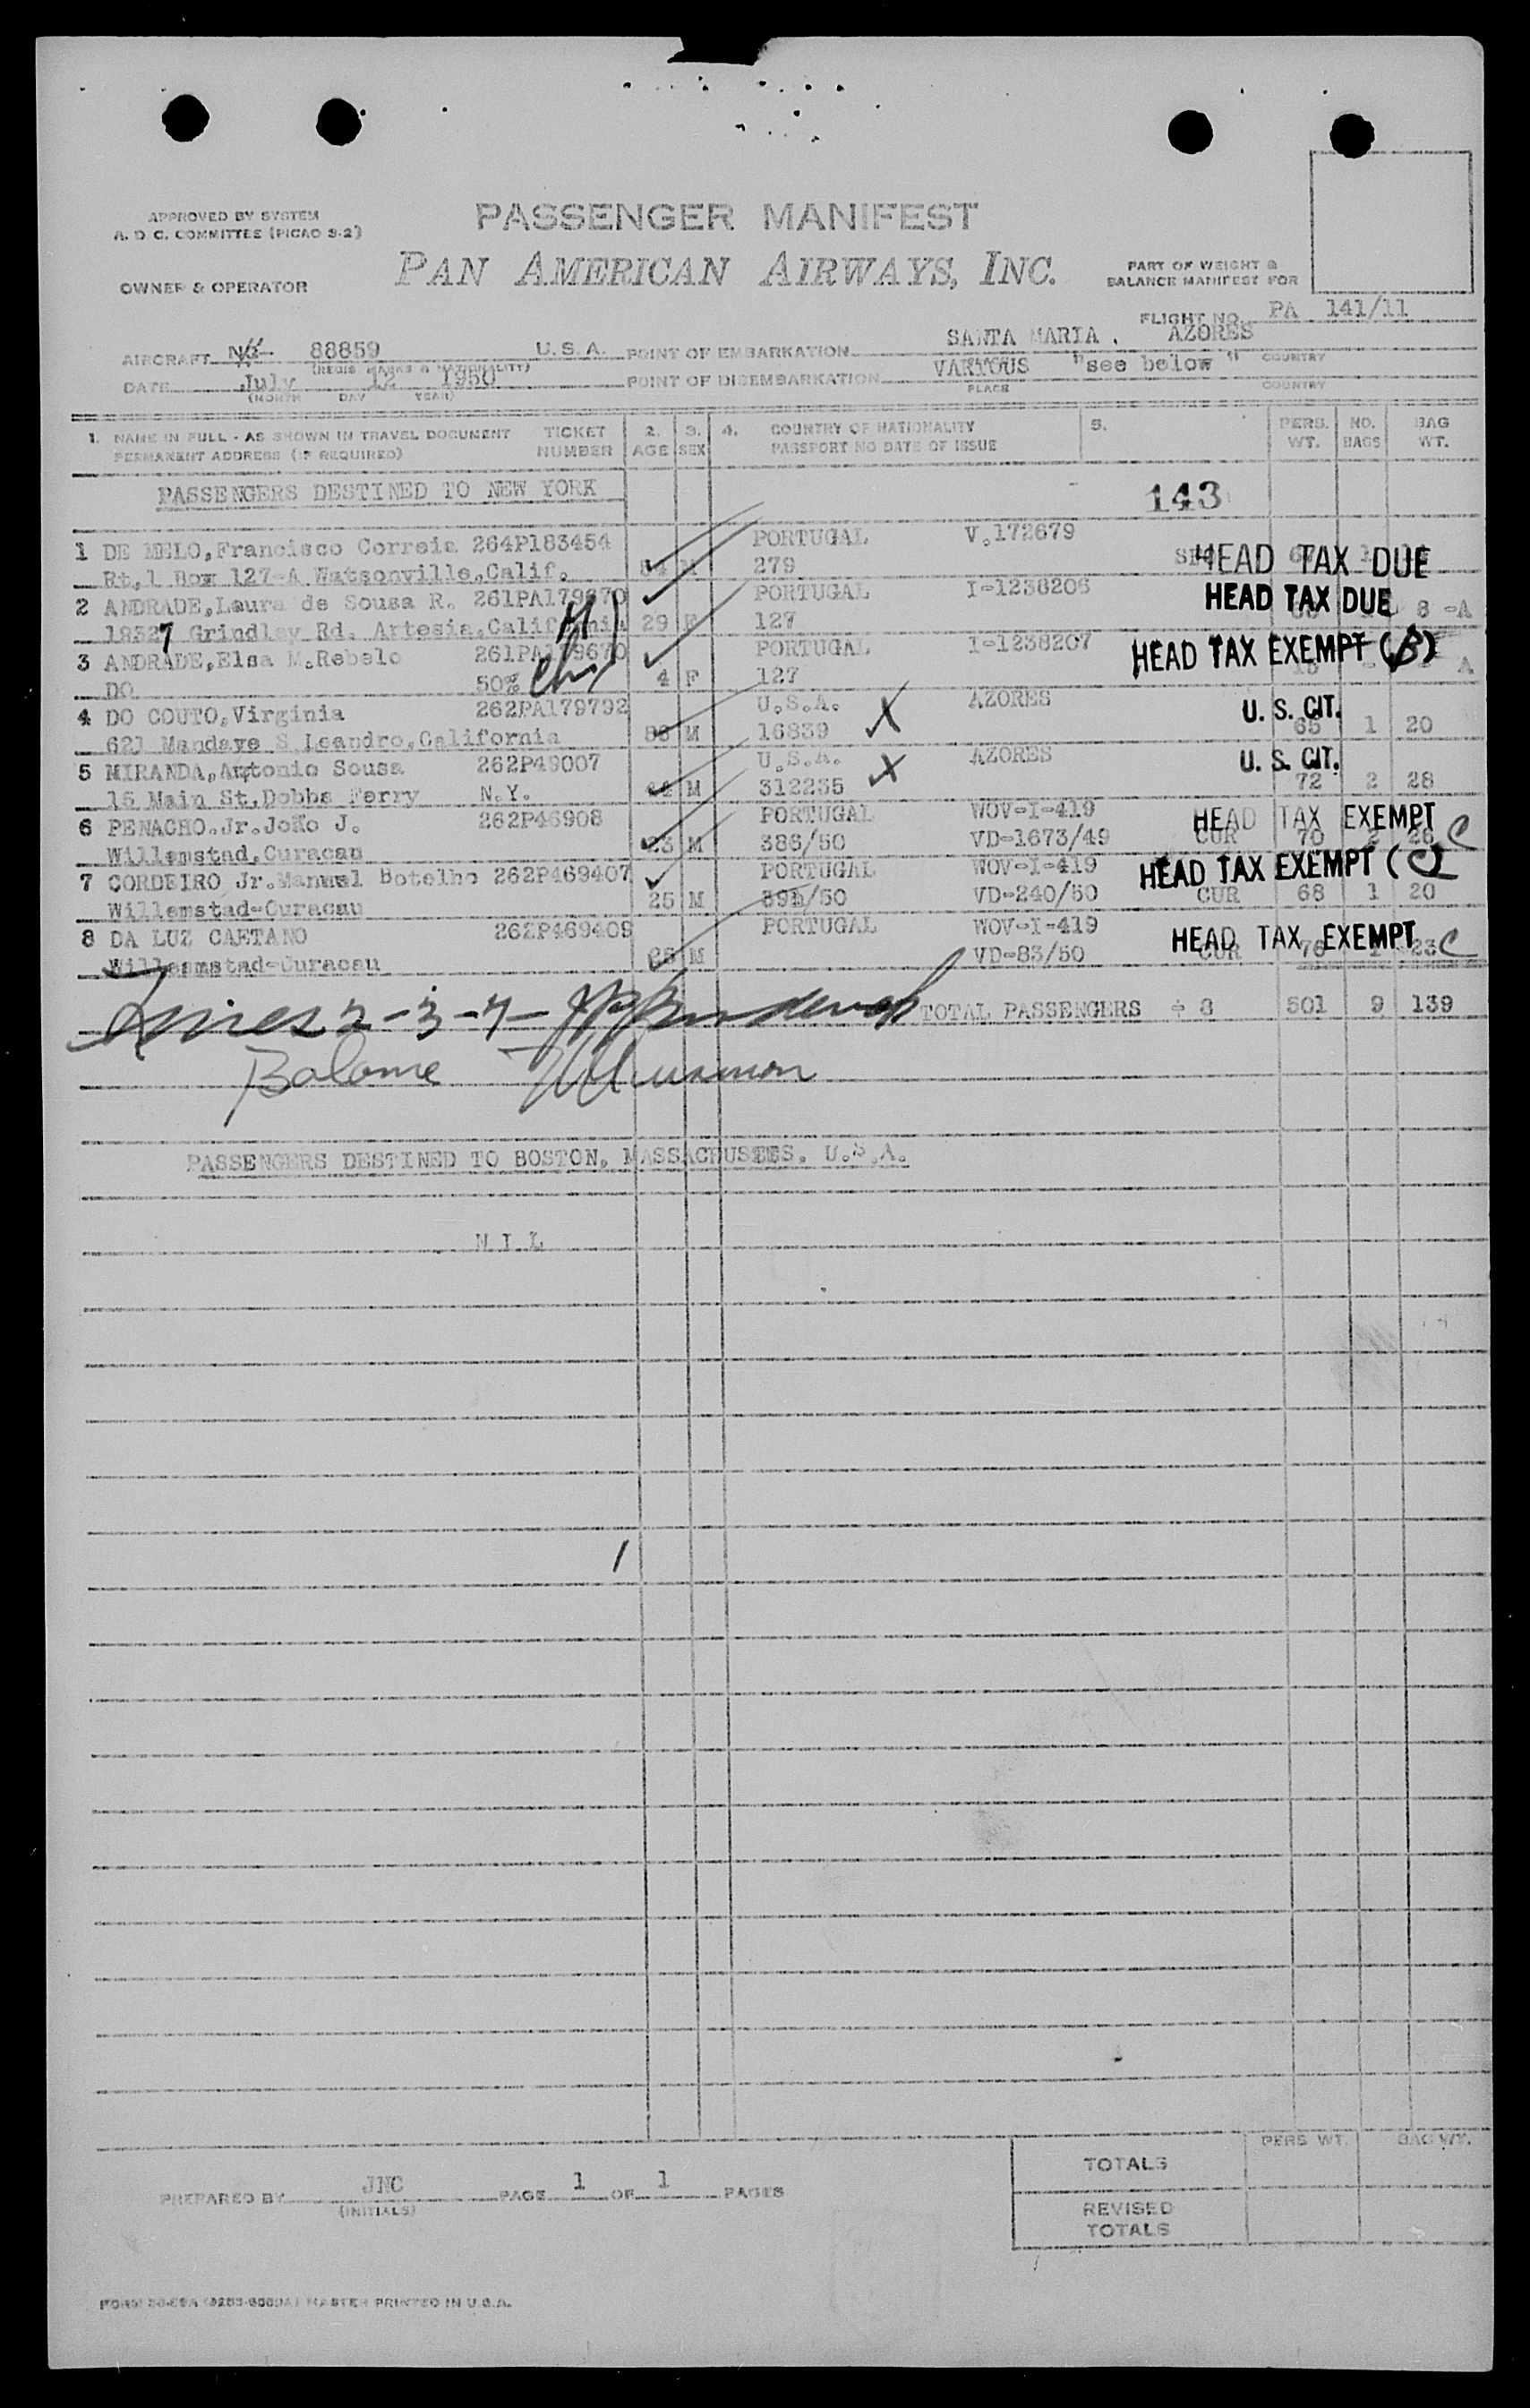 APPROVED BY SYSTEM
A. D. C. COMMITTEE (PICAO S-2)
PASSENGER MANIFEST
OWNER & OPERATOR
PAN AMERICAN AIRWAYS, INC.
PART OF WEIGHT &
BALANCE MANIFEST FOR
FLIGHT NO. PA 141/11
AIRCRAFT 88859 U.S.A. POINT OF EMBARKATION SANTA MARIA, AZORES
(REGIS MARKS & NATIONALITY) PLACE COUNTRY
DATE July 12 1950 POINT OF DISEMBARKATION VARIOUS "see below"
(MONTH DAY YEAR) PLACE COUNTRY
1. NAME IN FULL - AS SHOWN IN TRAVEL DOCUMENT TICKET 2. 3. 4. COUNTRY OF NATIONALITY 5. PERS. NO. BAG
PERMANENT ADDRESS (IF REQUIRED) NUMBER AGE SEX PASSPORT NO DATE OF ISSUE WT. BAGS WT.
PASSENGERS DESTINED TO NEW YORK 143
1 DE MELO,Francisco Correia 264P183454 PORTUGAL V.172679
Rt,1 Box 127-A Watsonville,Calif. M 279 HEAD TAX DUE
2 ANDRADE,Laura de Sousa R. 261PA179670 PORTUGAL I-1238206 HEAD TAX DUE
Grindlay Rd. Artesia,California 29 F 127 8 -A
3 ANDRADE,Elsa M.Rebelo 261PA179670 PORTUGAL I-1238207 HEAD TAX EXEMPT (B)
DO 50% 4 F 127 A
4 DO COUTO,Virginia 262PA179792 U.S.A. AZORES U. S. CIT.
621 Mandaye S Leandro,California M 16839 65 1 20
5 MIRANDA,Antonio Sousa 262P49007 U.S.A. AZORES U. S. CIT.
15 Main St,Dobbs Ferry N.Y. M 312235 72 2 28
6 PENACHO.Jr.João J. 262P46908 PORTUGAL WOV-I-419 HEAD TAX EXEMPT C
Willemstad,Curacau 23 M 386/50 VD-1673/49 CUR 70 2 26
7 CORDEIRO Jr.Manuel Botelho 262P469407 PORTUGAL WOV-I-419 HEAD TAX EXEMPT (C)
Willemstad-Curacau 25 M 395/50 VD-240/50 CUR 68 1 20
8 DA LUZ CAETANO 262P469409 PORTUGAL WOV-I-419 HEAD TAX EXEMPT C
Willemstad-Curacau M VD-83/50 CUR 76 1 23
Lines 2-3-7- TOTAL PASSENGERS 8 501 9 139
Balance
PASSENGERS DESTINED TO BOSTON, MASSACHUSETTS. U.S.A.
N I L
PREPARED BY JNC PAGE 1 OF 1 PAGES
(INITIALS)
PERS WT. BAG WT.
TOTALS
REVISED
TOTALS
MASTER PRINTED IN U.S.A.